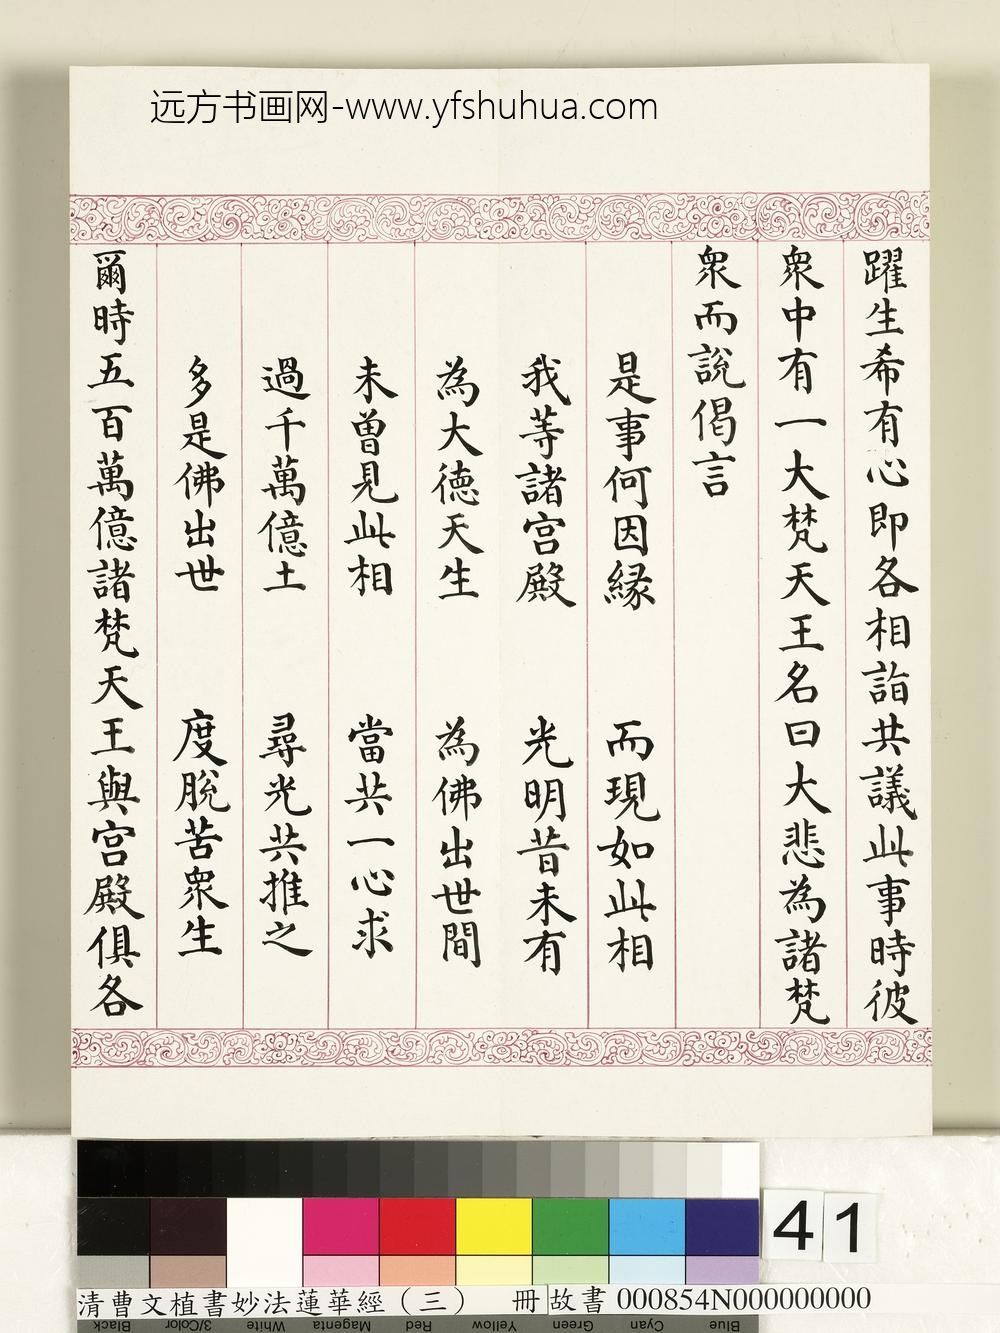 远方书画网-www.yfshuhua.com
躍生希有心即各相詣共議此事時彼
衆中有一大梵天王名曰大悲為諸梵
衆而說偈言
是事何因緣 而現如此相
我等諸宫殿 光明昔未有
為大德天生 為佛出世間
未曾見此相 當共一心求
過千萬億土 尋光共推之
多是佛出世 度脫苦衆生
爾時五百萬億諸梵天王與宫殿俱各
41
清曹文植書妙法蓮華經(三) 冊 故書 000854N000000000
Black 3/Color White Magenta Red Yellow Green Cyan Blue